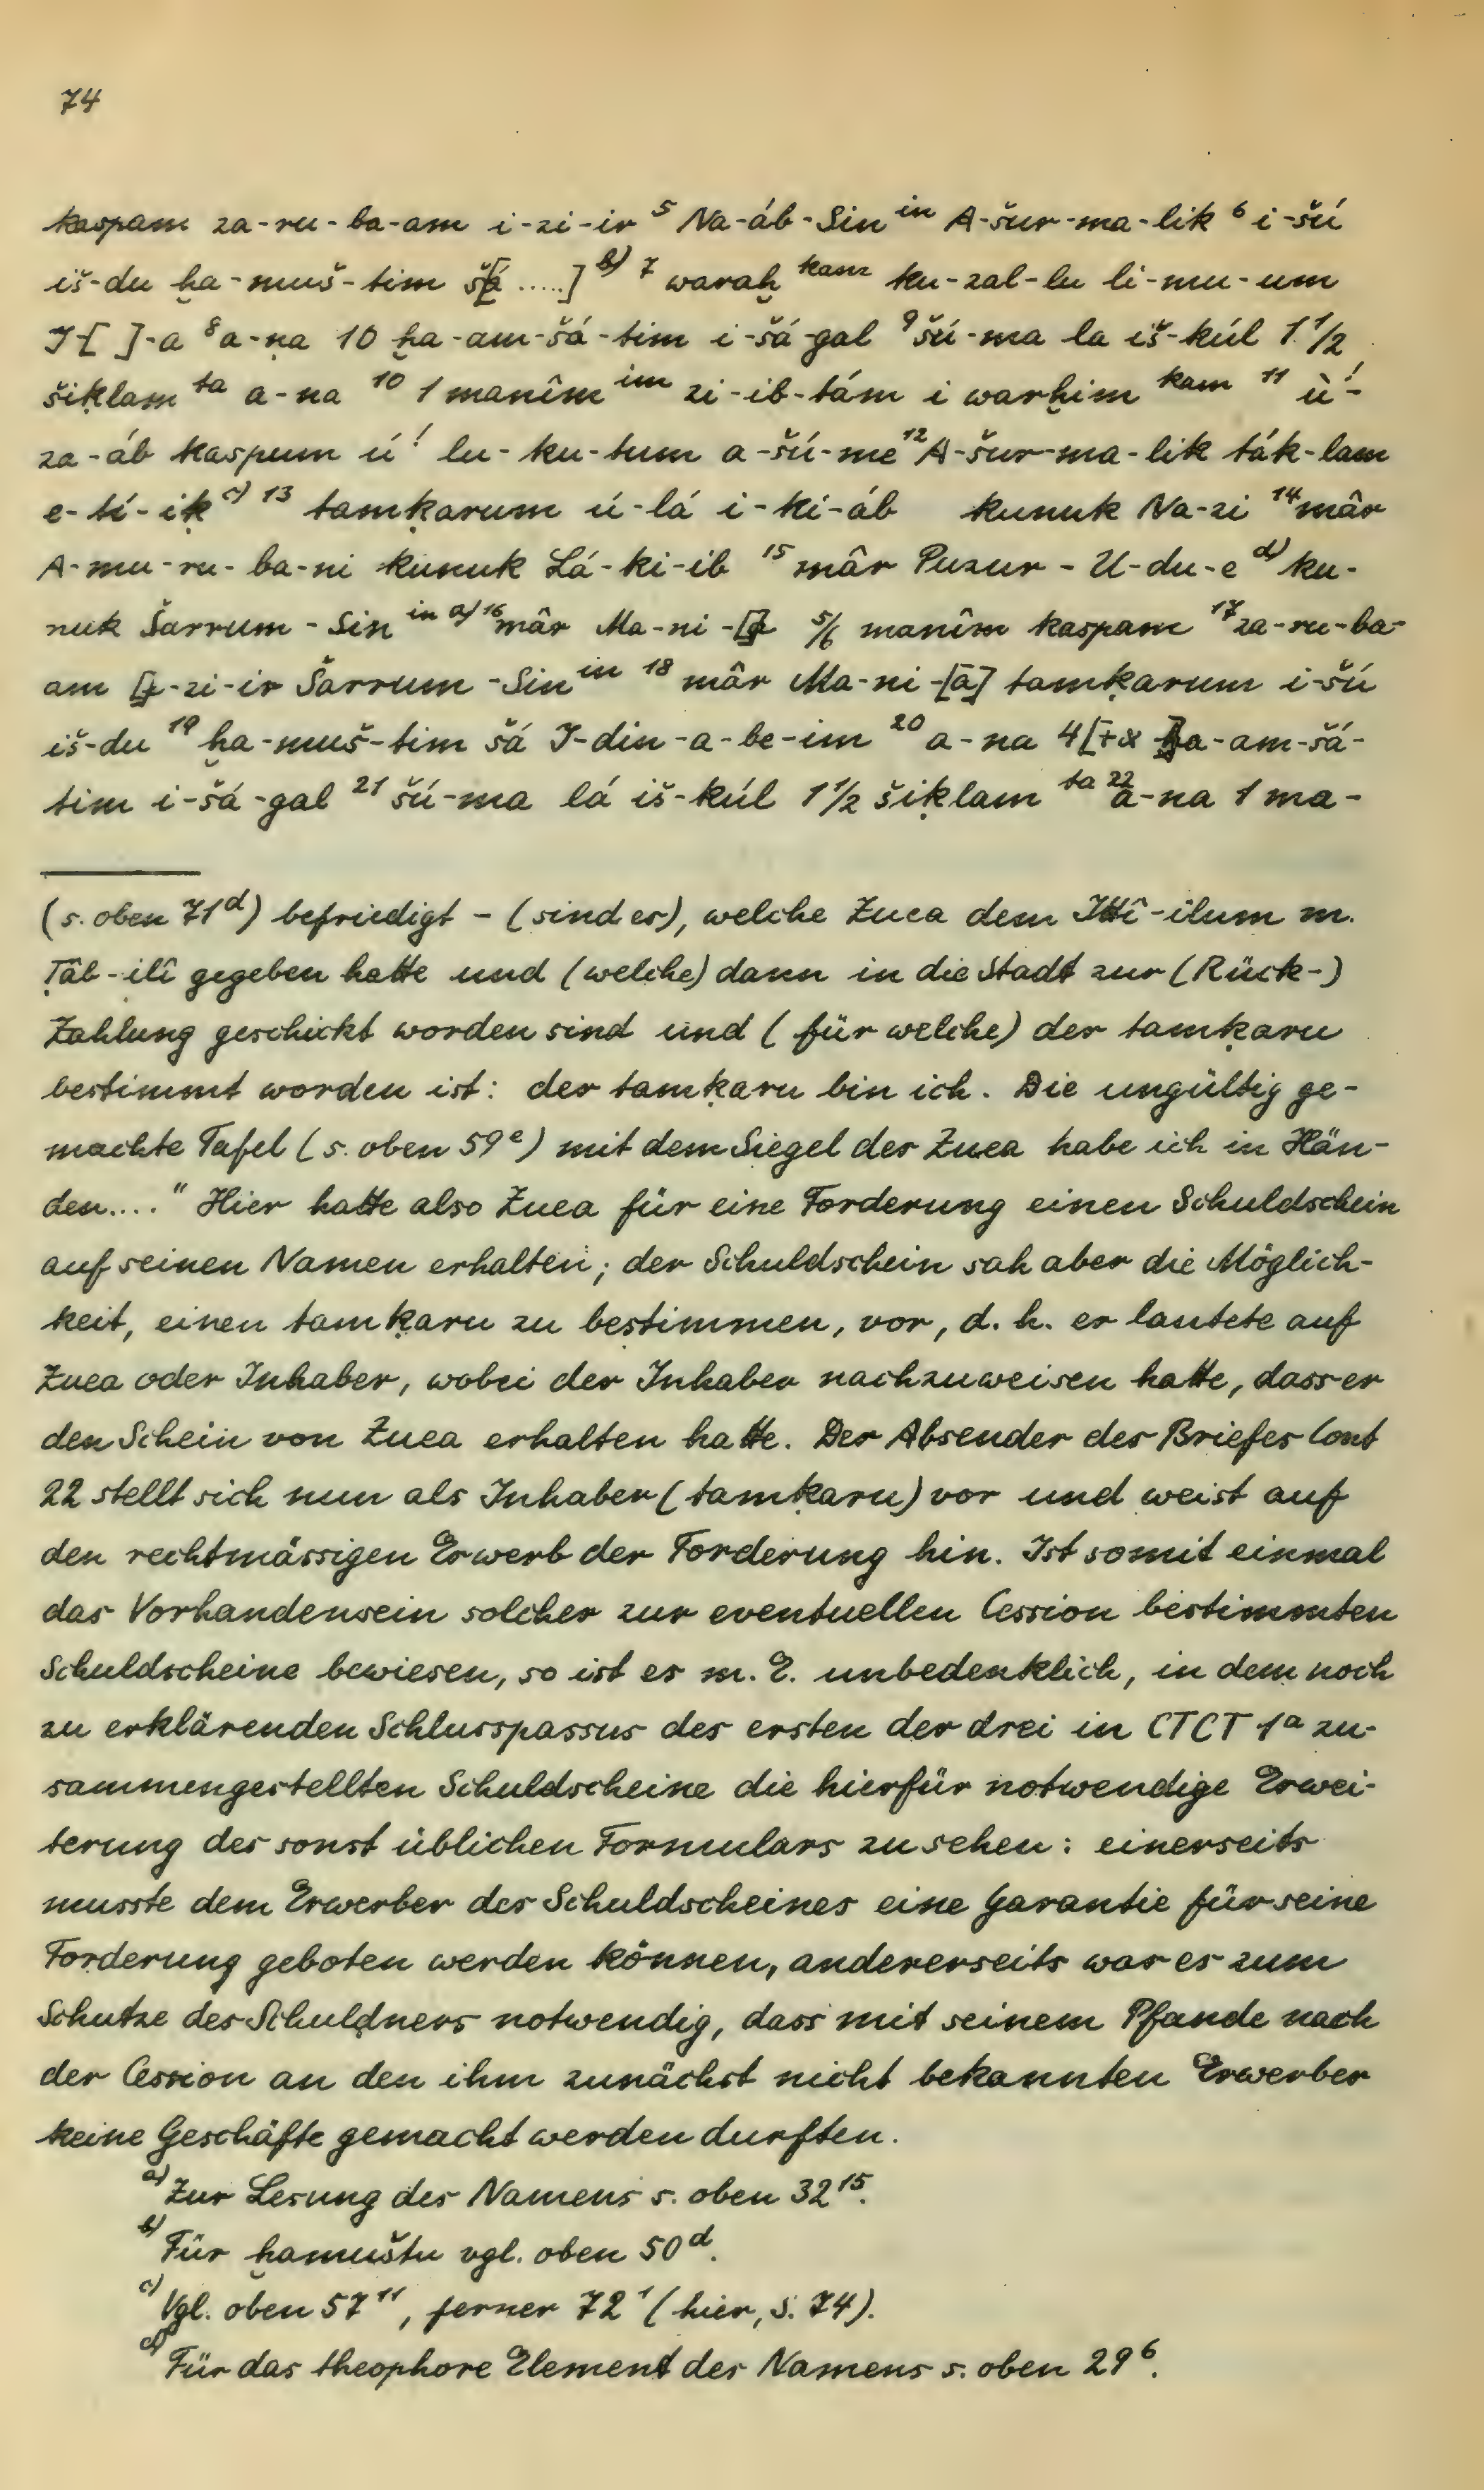 74
kaspam za-ru-ba-am i-zi-ir ⁵ Na-áb-Sin ⁱⁿ A-šur-ma-lik ⁶ i-šú
iš-du ḫa-muš-tim šá[.....] ᵇ⁾ ⁷ waraḫ ᵏᵃᵐ ku-zal-lu li-mu-um
I-[ ]-a ⁸ a-na 10 ḫa-am-šá-tim i-šá-gal ⁹ šú-ma la iš-kúl 1 1/2
šiḳlam ᵗᵃ a-na ¹⁰ 1 manîm ⁱᵐ zi-ib-tám i warḫim ᵏᵃᵐ ¹¹ ù!-
za-áb kaspum ú! lu-ku-tum a-šú-me ¹² A-šur-ma-lik ták-lam
e-tí-iḳ ᶜ⁾ ¹³ tamḳarum ú-lá i-ki-áb kunuk Na-zi ¹⁴ mâr
A-mu-ru-ba-ni kunuk Lá-ki-ib ¹⁵ mâr Puzur-U-du-e ᵈ⁾ ku-
nuk Šarrum-Sin ⁱⁿ ᵃ⁾ ¹⁶ mâr Ma-ni-[a] 5/6 manîm kaspam ¹⁷ za-ru-ba-
am [i]-zi-ir Šarrum-Sin ⁱⁿ ¹⁸ mâr Ma-ni-[a] tamḳarum i-šú
iš-du ¹⁹ ḫa-muš-tim šá I-din-a-be-im ²⁰ a-na 4[+x ḫ]a-am-šá-
tim i-šá-gal ²¹ šú-ma lá iš-kúl 1 1/2 šiḳlam ᵗᵃ ²² a-na 1 ma-
(s. oben 71ᵈ) befriedigt - (sind es), welche Zuea dem Ittî-ilum m.
Ṭâb-ilî gegeben hatte und (welche) dann in die Stadt zur (Rück-)
Zahlung geschickt worden sind und (für welche) der tamḳaru
bestimmt worden ist: der tamḳaru bin ich. Die ungültig ge-
machte Tafel (s. oben 59ᵉ) mit dem Siegel des Zuea habe ich in Hän-
den...." Hier hatte also Zuea für eine Forderung einen Schuldschein
auf seinen Namen erhalten; der Schuldschein sah aber die Möglich-
keit, einen tamḳaru zu bestimmen, vor, d. h. er lautete auf
Zuea oder Inhaber, wobei der Inhaber nachzuweisen hatte, dass er
den Schein von Zuea erhalten hatte. Der Absender des Briefes Cont
22 stellt sich nun als Inhaber (tamḳaru) vor und weist auf
den rechtmässigen Erwerb der Forderung hin. Ist somit einmal
das Vorhandensein solcher zur eventuellen Cession bestimmten
Schuldscheine bewiesen, so ist es m. E. unbedenklich, in dem noch
zu erklärenden Schlusspassus des ersten der drei in CTCT 1ᵃ zu-
sammengestellten Schuldscheine die hierfür notwendige Erwei-
terung des sonst üblichen Formulars zu sehen: einerseits
musste dem Erwerber des Schuldscheines eine Garantie für seine
Forderung geboten werden können, andererseits war es zum
Schutze des Schuldners notwendig, dass mit seinem Pfande nach
der Cession an den ihm zunächst nicht bekannten Erwerber
keine Geschäfte gemacht werden durften.
ᵃ⁾ Zur Lesung des Namens s. oben 32¹⁵.
ᵇ⁾ Für ḫamuštu vgl. oben 50ᵈ.
ᶜ⁾ Vgl. oben 57¹¹, ferner 72¹ (hier, S. 74).
ᵈ⁾ Für das theophore Element des Namens s. oben 29⁶.